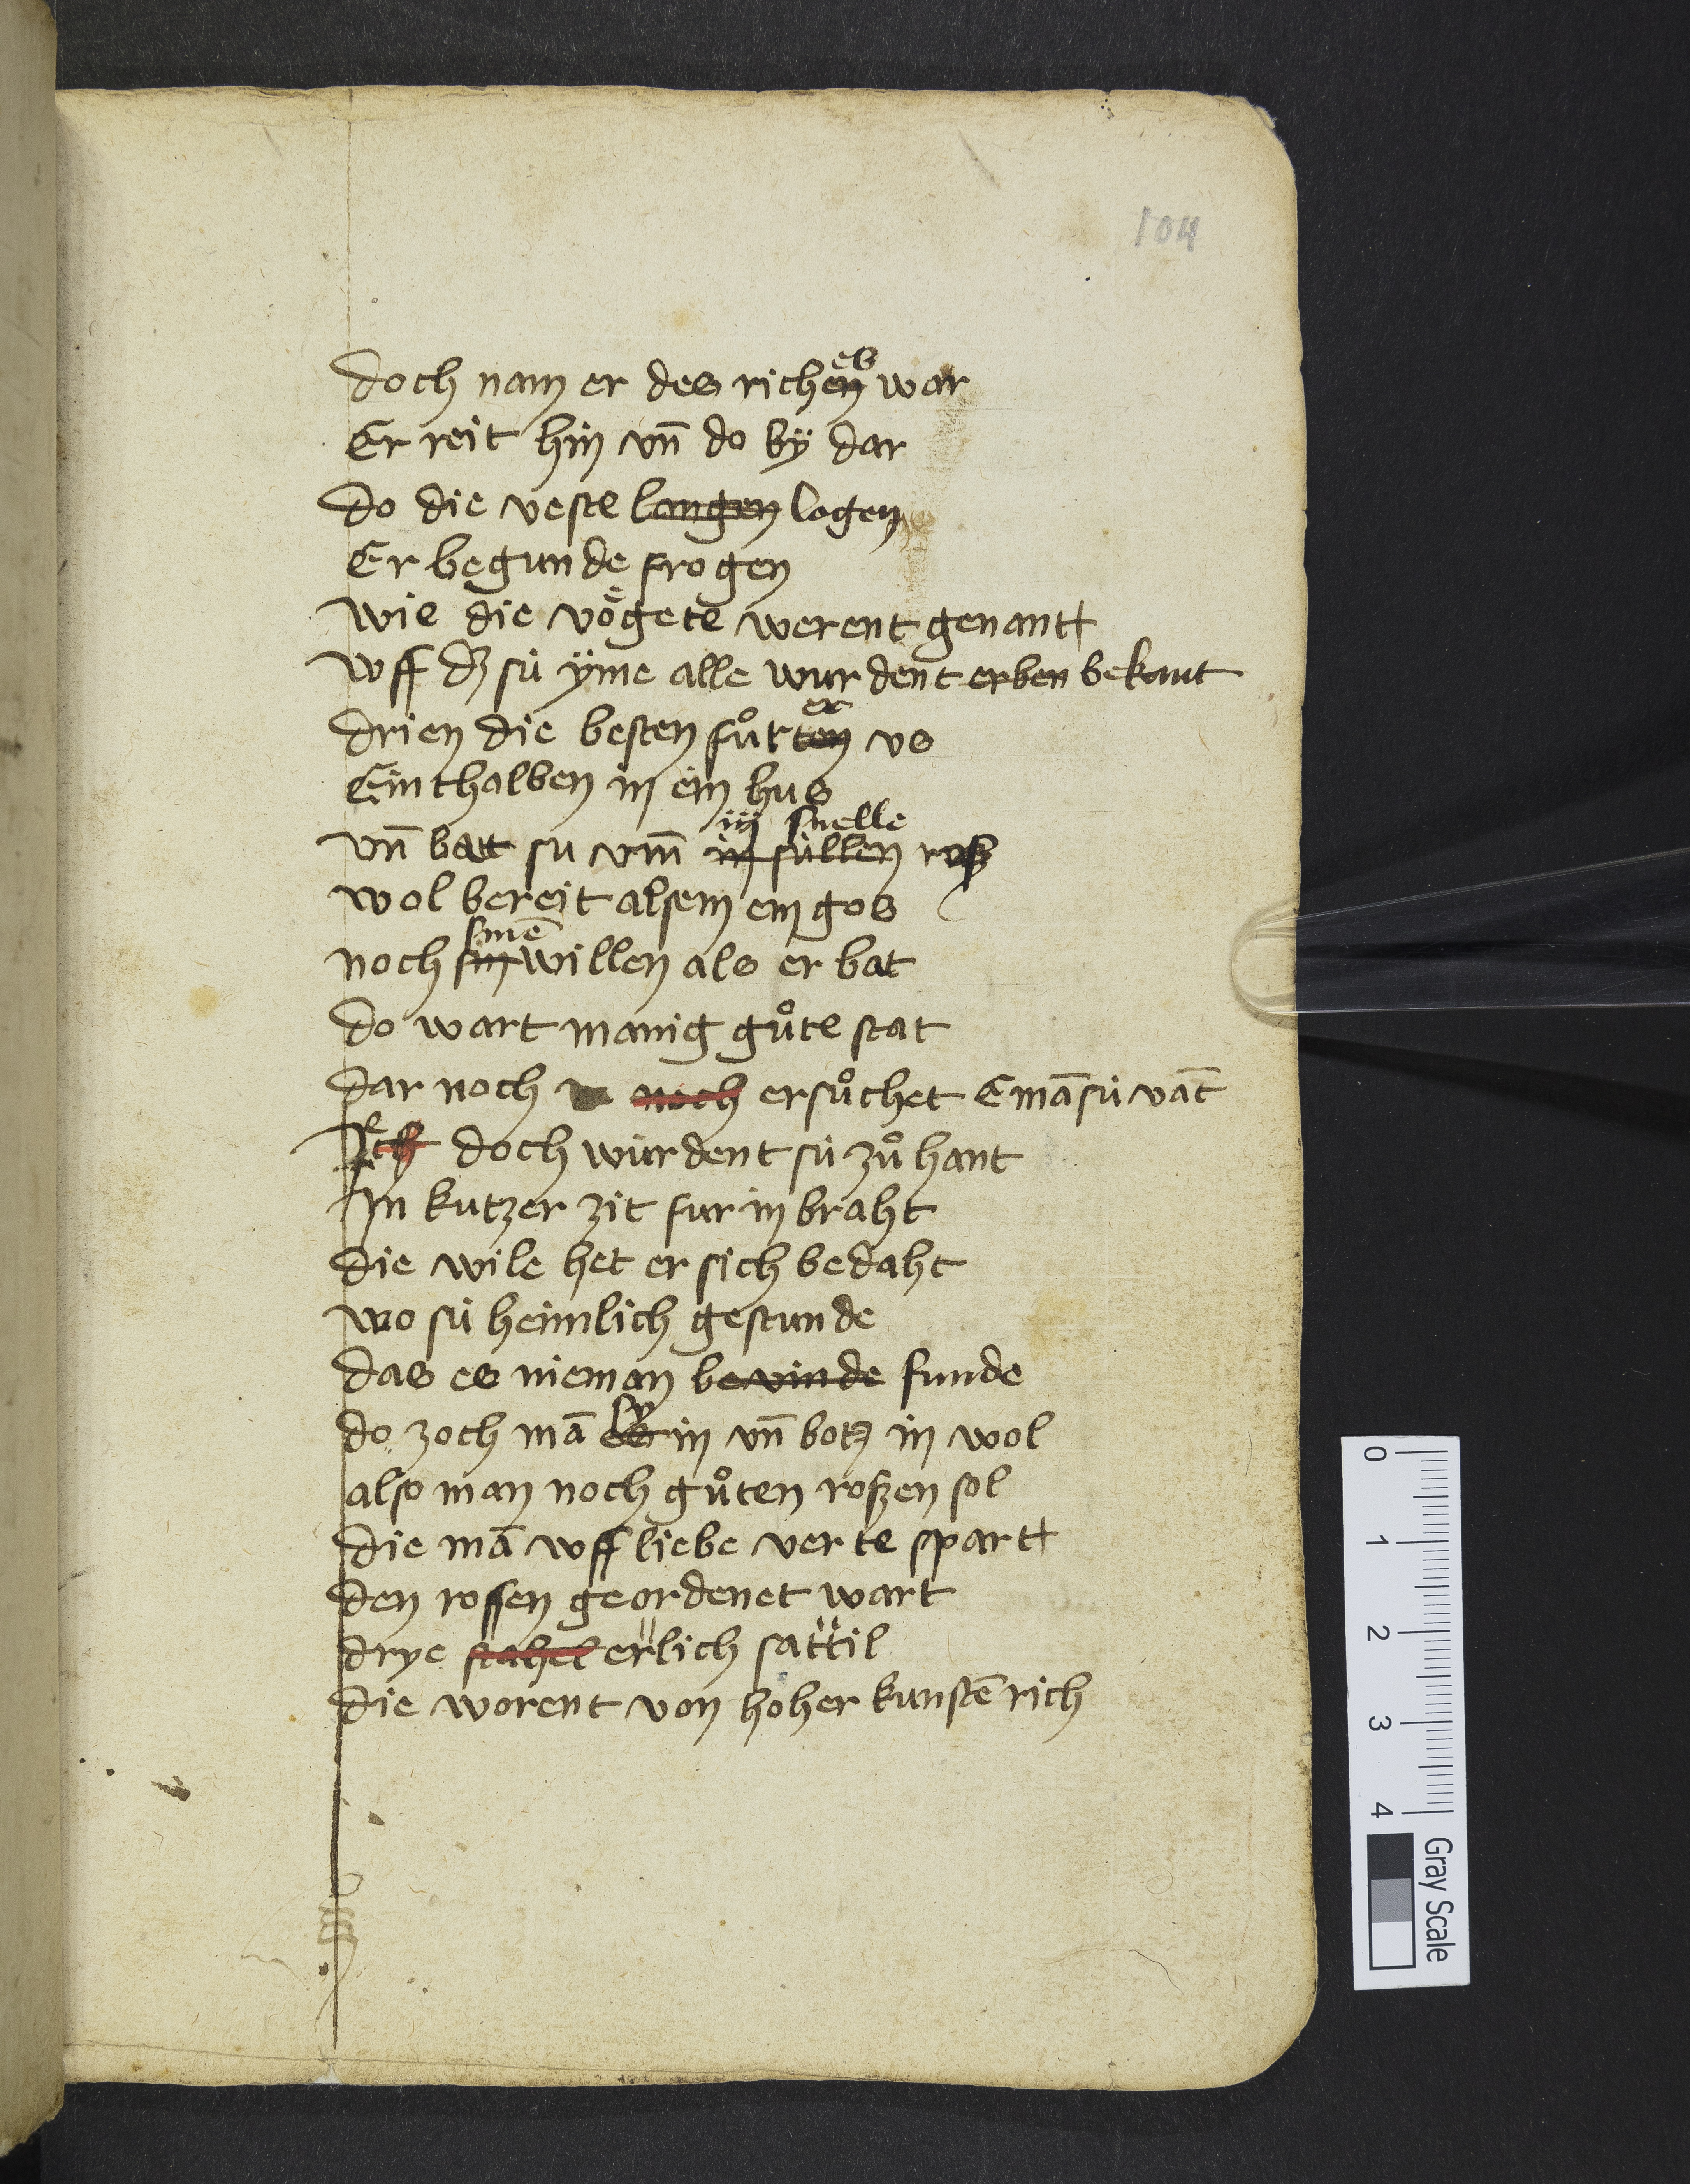 104
doch nam er des richen es war
Er reit hin vn̄ do bÿ dar
do die veste langen logen
Er begunde frogen
wie die vögete werent genant
wff dz sú ÿme alle wurdent erben bekant
drien die besten fůrten er vs
Einthalben in ein hus
iij snelle
vn̄ batt su vm̄ in súllen rosz
wol bereit alsem ein gos
sinē
noch sin willen als er bat
do wart manig gůte stat
dar noch noch ersůchet E mā sú vāt
Ich doch wúrdent sú zů hant
In kutzer zit fur in braht
die wile het er sich bedaht
wo sú heimlich gestunde
das es nieman bevinde funde
do zoch mā es sy in vn̄ botz in wol
also man noch gůten roszen sol
die mā wff liebe verte spart
den rossen geordenet wart
drye stahel erlich sattil
die worent von hoher kunstē rich
0
1
2
3
4
Gray Scale